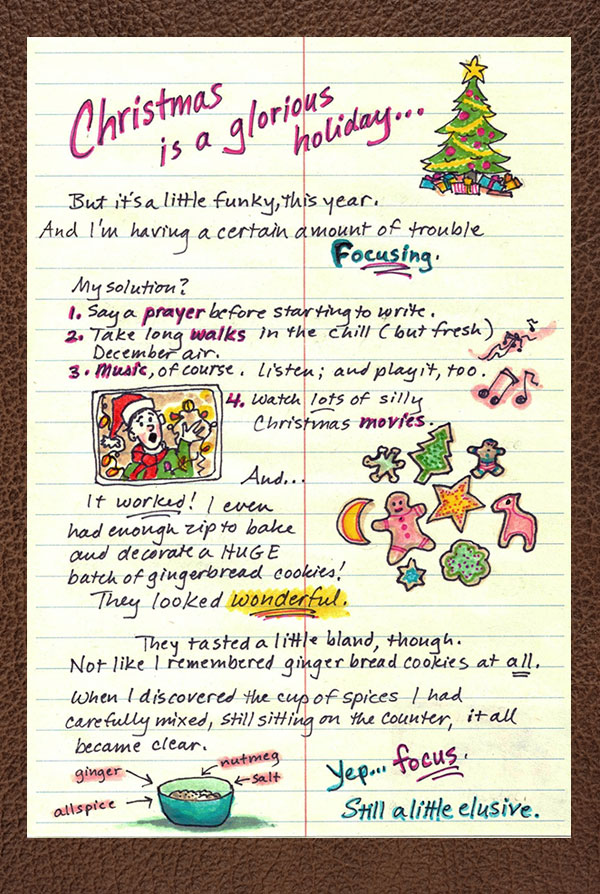 Christmas
is a glorious
holiday...
But it's a little funky, this year.
And I'm having a certain amount of trouble
Focusing.
My solution?
1. Say a prayer before starting to write.
2. Take long walks in the chill (but fresh)
December air.
3. Music, of course. listen; and play it, too.
4. Watch lots of silly
Christmas movies.
And...
It worked! I even
had enough zip to bake
and decorate a HUGE
batch of gingerbread cookies!
They looked wonderful.
They tasted a little bland, though.
Not like I remembered ginger bread cookies at all.
When I discovered the cup of spices I had
carefully mixed, still sitting on the counter, it all
became clear.
ginger
nutmeg
salt
allspice
Yep... focus.
Still a little elusive.